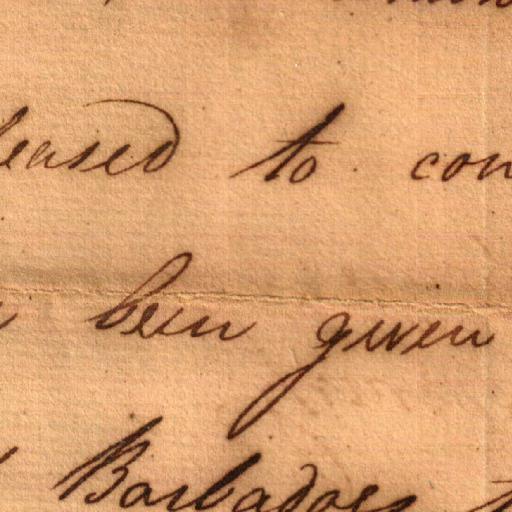 leased to con
been given
Barbadoes